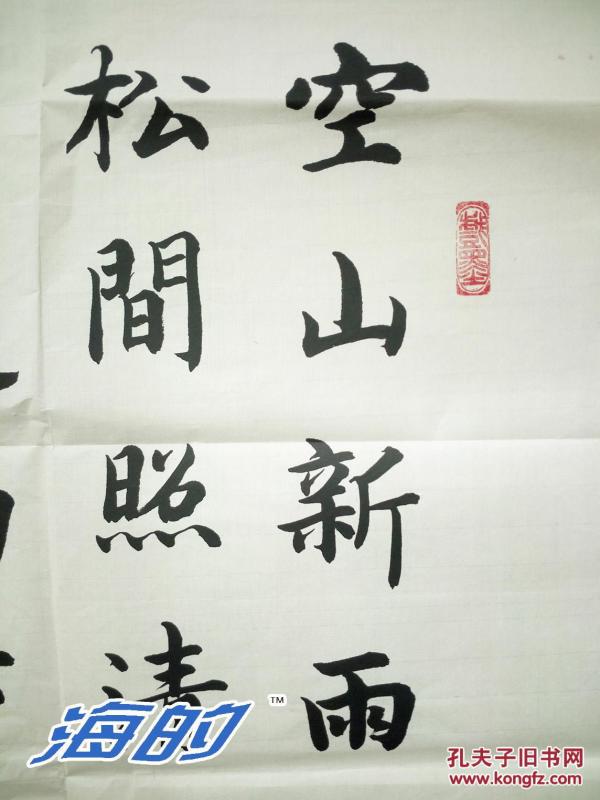 空山新雨
松間照清
海的™
孔夫子旧书网
www.kongfz.com